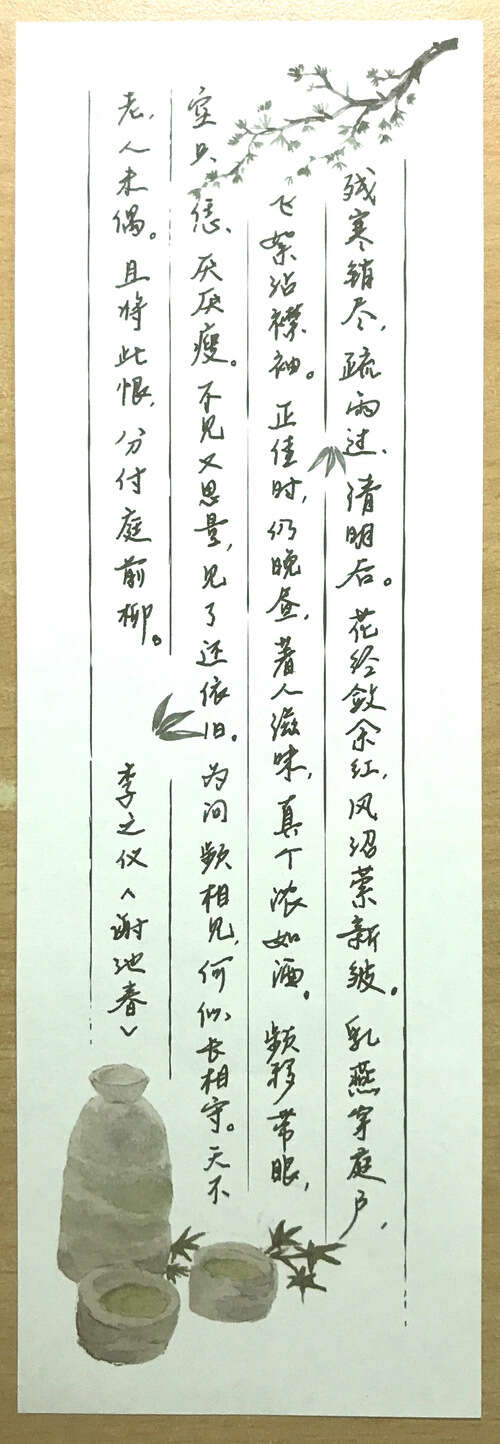 残寒销尽,疏雨过、清明后。花经敛余红,风沼萦新皱。乳燕穿庭户,
飞絮沾襟袖。正佳时,仍晚昼,著人滋味,真个浓如酒。频移带眼,
空只恁、厌厌瘦。不见又思量,见了还依旧。为问频相见,何似长相守。天不
老,人未偶。且将此恨,分付庭前柳。 李之仪〈谢池春〉